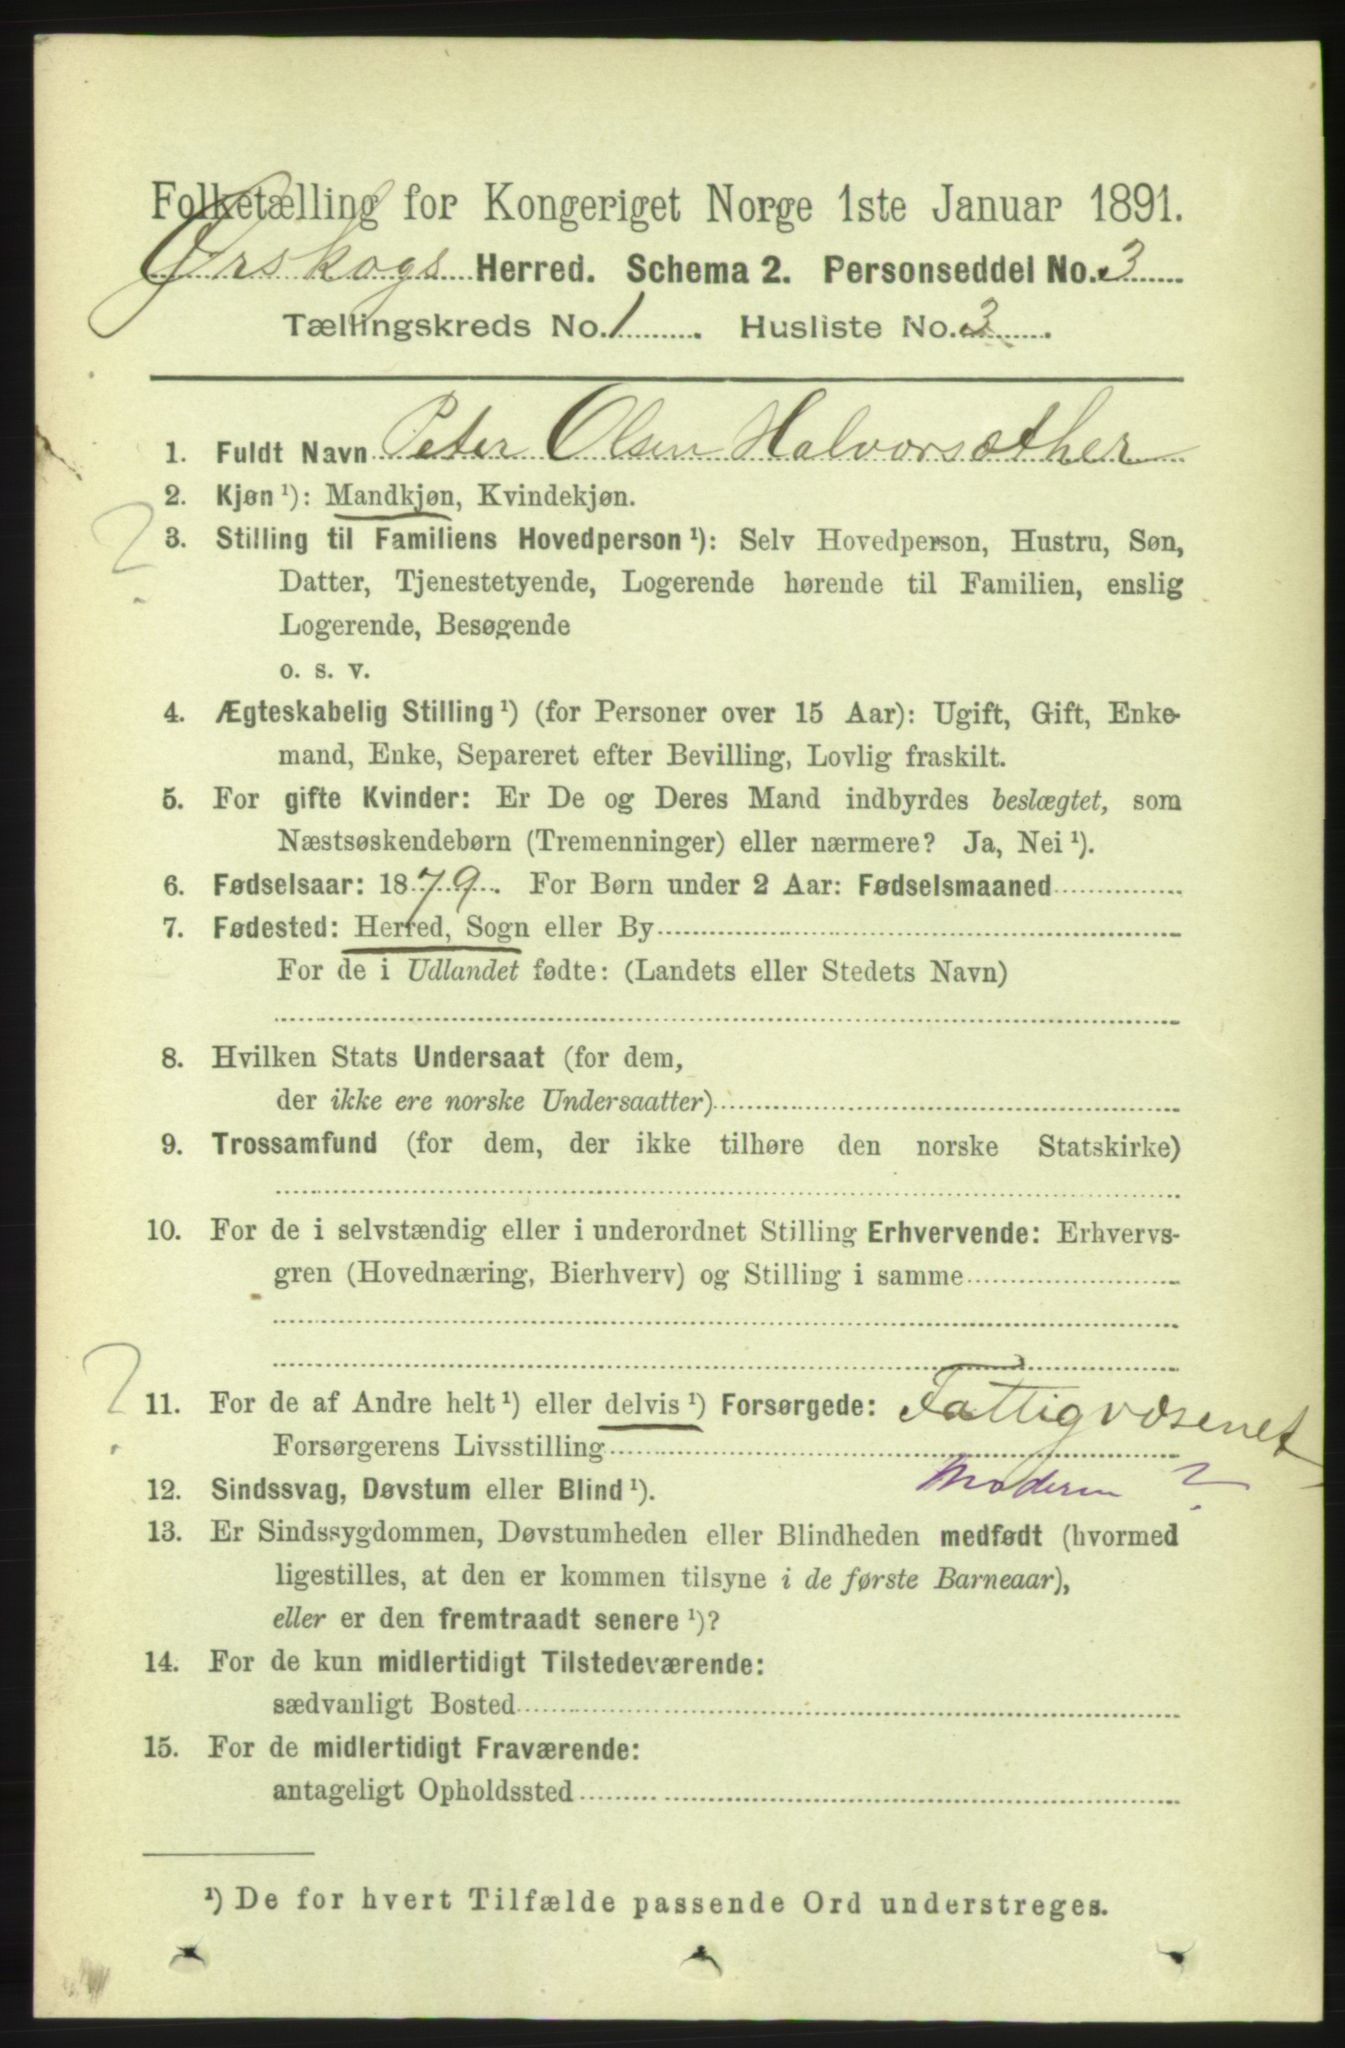 Folketælling for Kongeriget Norge 1ste Januar 1891.
Ørskogs Herred. Schema 2. Personseddel No. 3
Tællingskreds No. 1. Husliste No. 3.
1. Fuldt Navn Peter Olsen Halvorsæther
2. Kjøn ¹): Mandkjøn, Kvindekjøn.
? 3. Stilling til Familiens Hovedperson ¹): Selv Hovedperson, Hustru, Søn,
Datter, Tjenestetyende, Logerende hørende til Familien, enslig
Logerende, Besøgende
o. s. v.
4. Ægteskabelig Stilling ¹) (for Personer over 15 Aar): Ugift, Gift, Enke-
mand, Enke, Separeret efter Bevilling, Lovlig fraskilt.
5. For gifte Kvinder: Er De og Deres Mand indbyrdes beslægtet, som
Næstsøskendebørn (Tremenninger) eller nærmere? Ja, Nei ¹).
6. Fødselsaar: 1879. For Børn under 2 Aar: Fødselsmaaned
7. Fødested: Herred, Sogn eller By
For de i Udlandet fødte: (Landets eller Stedets Navn)
8. Hvilken Stats Undersaat (for dem,
der ikke ere norske Undersaatter)
9. Trossamfund (for dem, der ikke tilhøre den norske Statskirke)
10. For de i selvstændig eller i underordnet Stilling Erhvervende: Erhvervs-
gren (Hovednæring, Bierhverv) og Stilling i samme
? 11. For de af Andre helt ¹) eller delvis ¹) Forsørgede: Fattigvæsenet
Forsørgerens Livsstilling
Moderen ?
12. Sindssvag, Døvstum eller Blind ¹).
13. Er Sindssygdommen, Døvstumheden eller Blindheden medfødt (hvormed
ligestilles, at den er kommen tilsyne i de første Barneaar),
eller er den fremtraadt senere ¹)?
14. For de kun midlertidigt Tilstedeværende:
sædvanligt Bosted
15. For de midlertidigt Fraværende:
antageligt Opholdssted
¹) De for hvert Tilfælde passende Ord understreges.